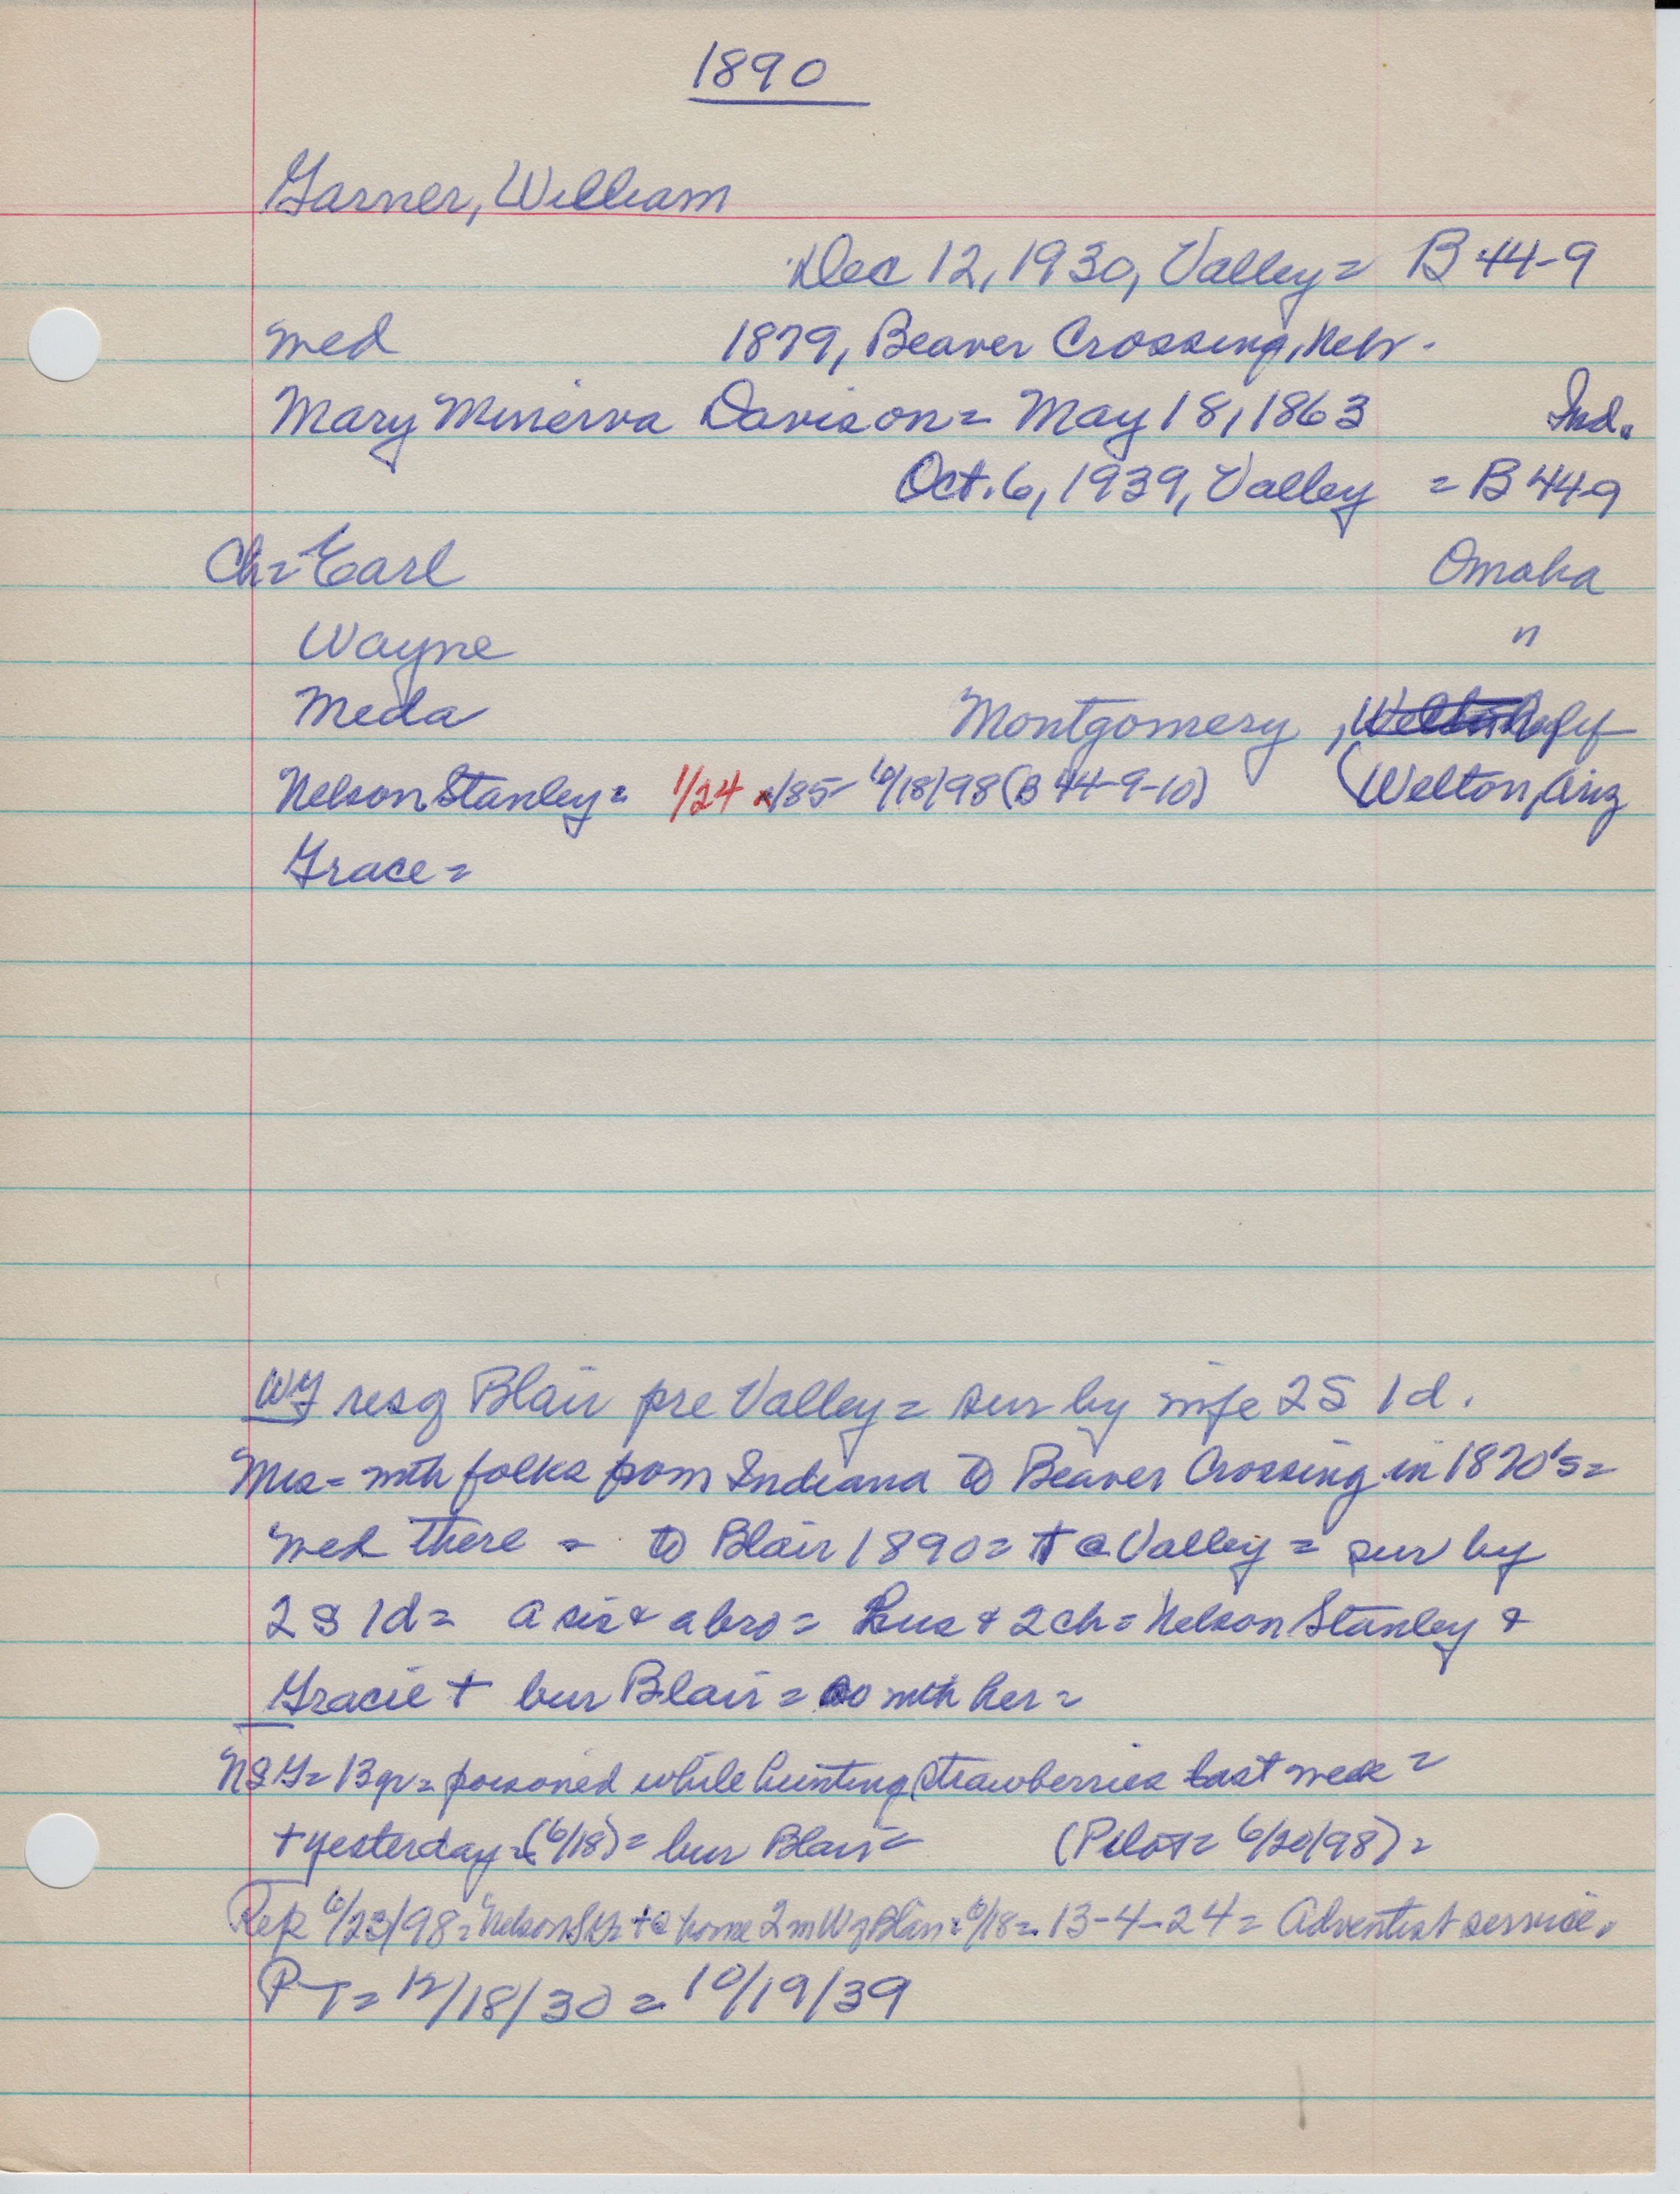 1890
Garner, William
Dec 12, 1930, Valley = B 44-9
med 1879, Beaver Crossing, Nebr.
Mary Minerva Davison = May 18, 1863 Ind.
Oct. 6, 1939, Valley = B 44-9
Ch = Earl Omaha
Wayne "
Meda Montgomery,
Nelson Stanley = 1/24 /85 - 6/18/98 (B 44-9-10) (Welton, Ariz
Grace =
WG res of Blair pre Valley = sur by wife 2 S 1 d.
Mrs = wth folks from Indiana to Beaver Crossing in 1870's =
med there = to Blair 1890 = to Valley = sur by
2 S 1 d = a sis & a bro = Hus & 2 ch = Nelson Stanley &
Gracie + bur Blair = so wth her =
NSG = 13 yr = poisoned while hunting strawberries last week =
+ yesterday = (6/18) = bur Blair = (Pilot = 6/20/98) =
Rep 6/23/98 = Nelson + @ home 2 m W of Blair = 6/18 = 13-4-24 = Adventist service.
PT = 12/18/30 = 10/19/39